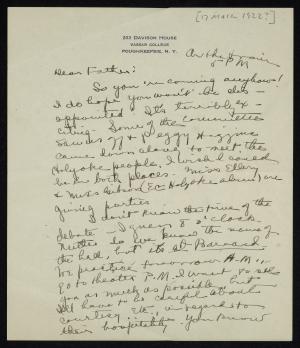 [17 March 1922?]
203 DAVISON HOUSE
VASSAR COLLEGE
POUGHKEEPSIE, N. Y.
On the train
5 P.M
Dear Father:
So you're coming anyhow!
I do hope you won't be dis-
appointed. It's terribly ex-
citing. Some of the communities
& Peggy Higgins
came down along to meet the
Holyoke people. I wish I could
be in both places. Miss Ellery
& Miss (Ec. Holyoke alum) are
giving parties
I don't know the time of the
debate – I guess 8 o'clock.
Neither do I know the name of
the hall, but it's at Barnard.
We practice tomorrow A.M.,
go to theater P.M. I want to see
you as much as possible, but
I'll have to be careful about
courtesy, etc., in regard to
their hospitality, you know